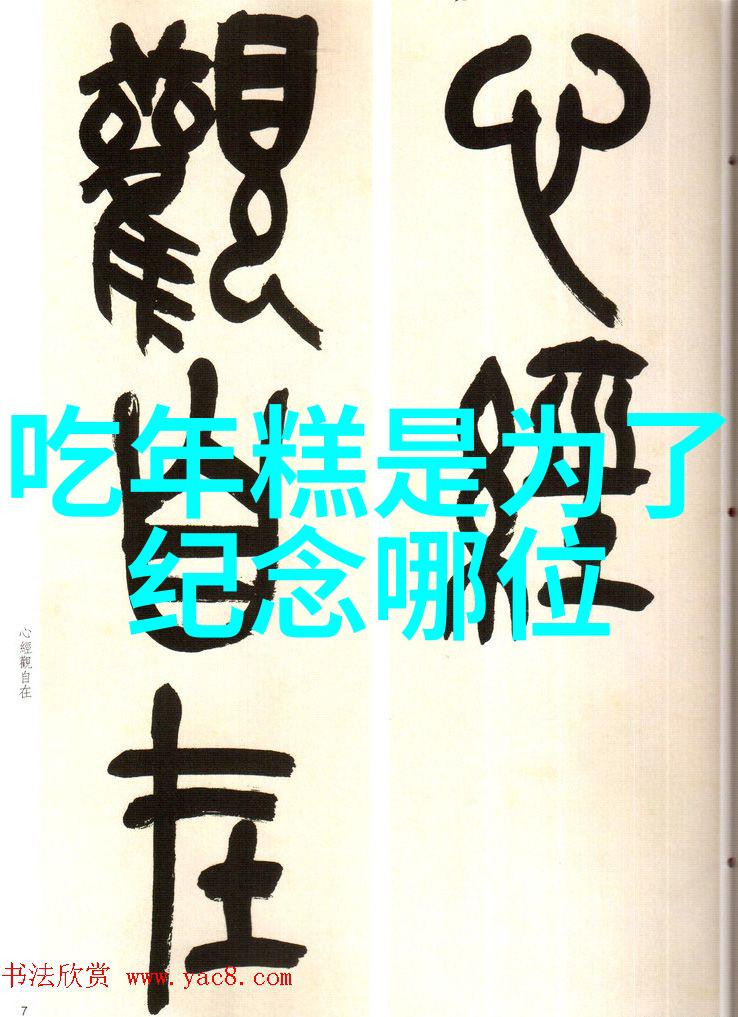 心經
觀自在
吃年糕是为了
纪念哪位
心經觀自在
书法欣赏 www.yac8.com
7